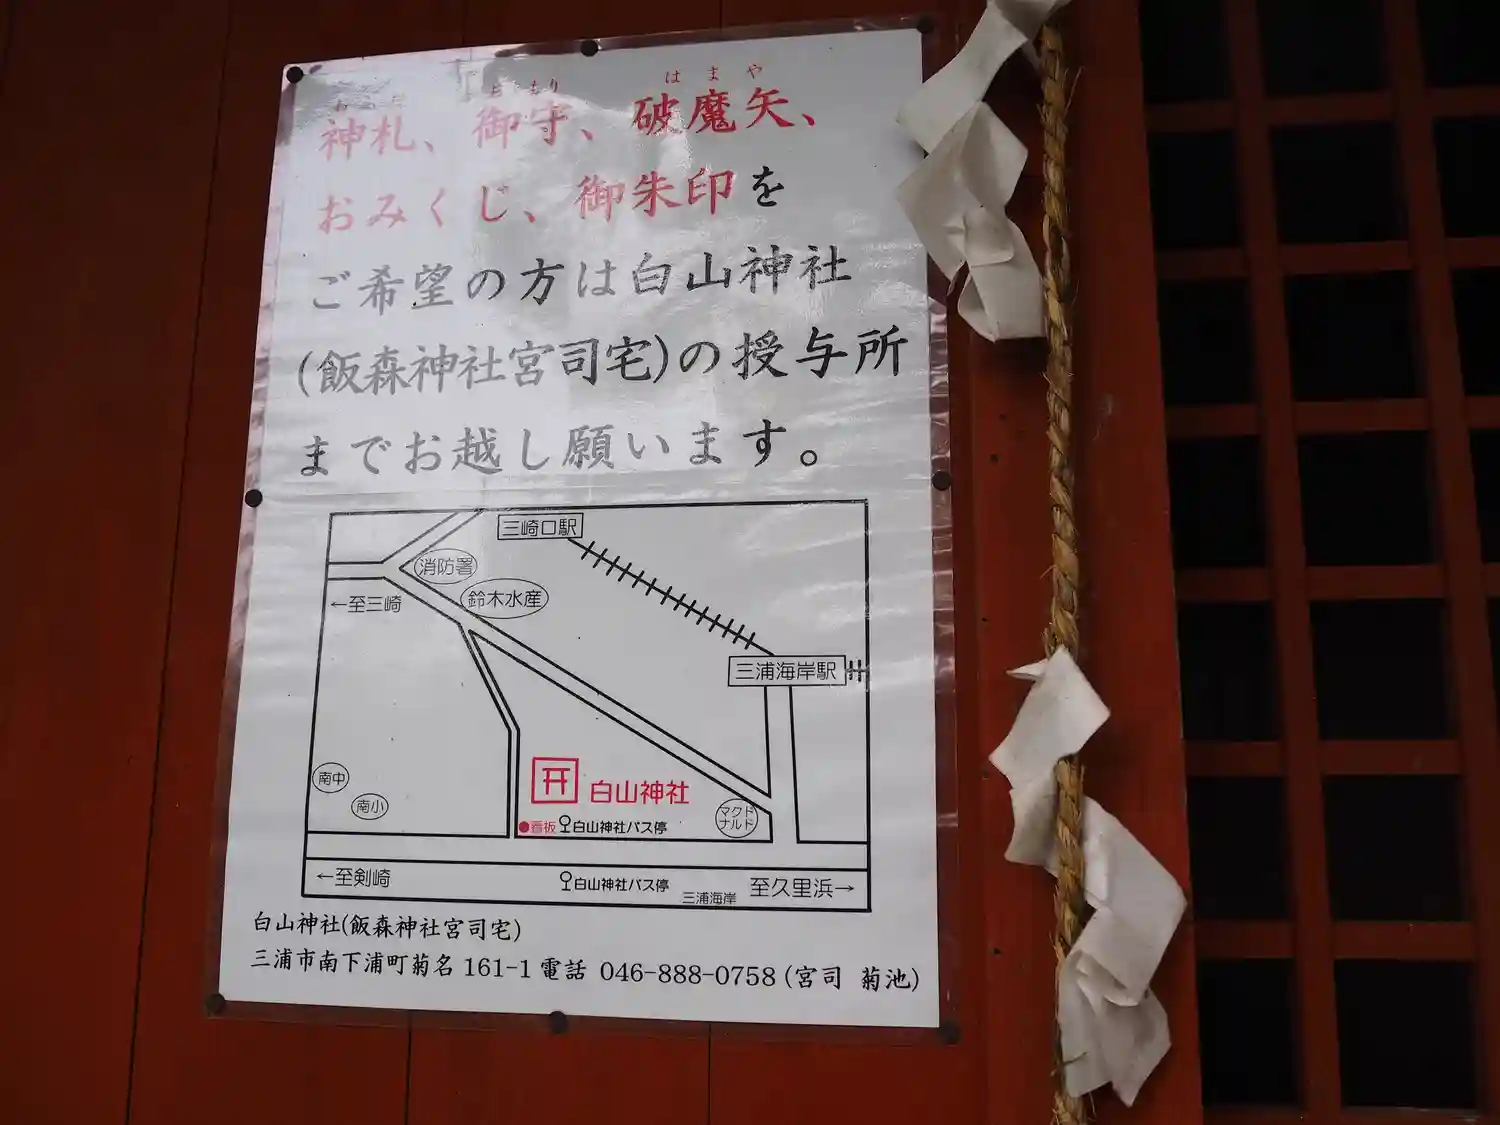 おふだ おまもり はまや
神札、御守、破魔矢、
おみくじ、御朱印を
ご希望の方は白山神社
(飯森神社宮司宅)の授与所
までお越し願います。
三崎口駅
消防署
鈴木水産
←至三崎
三浦海岸駅
南中
南小
白山神社
マクド
ナルド
●看板 白山神社バス停
←至剣崎
白山神社バス停
三浦海岸
至久里浜→
白山神社(飯森神社宮司宅)
三浦市南下浦町菊名161-1電話 046-888-0758(宮司 菊池)